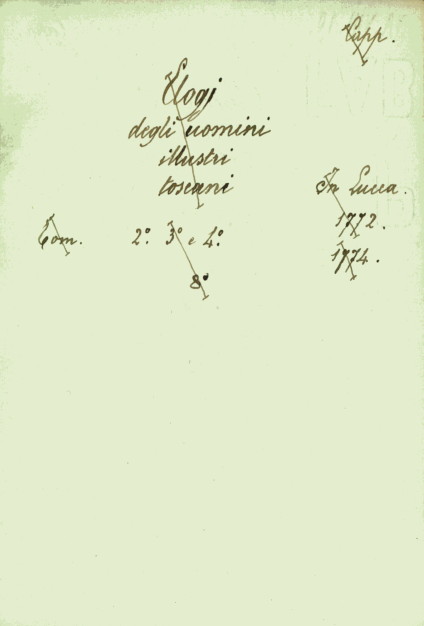 Capp.
Elogj
degli uomini
illustri
toscani
In Lucca.
1772.
1774.
Tom. 2.º 3º e 4.º
8º